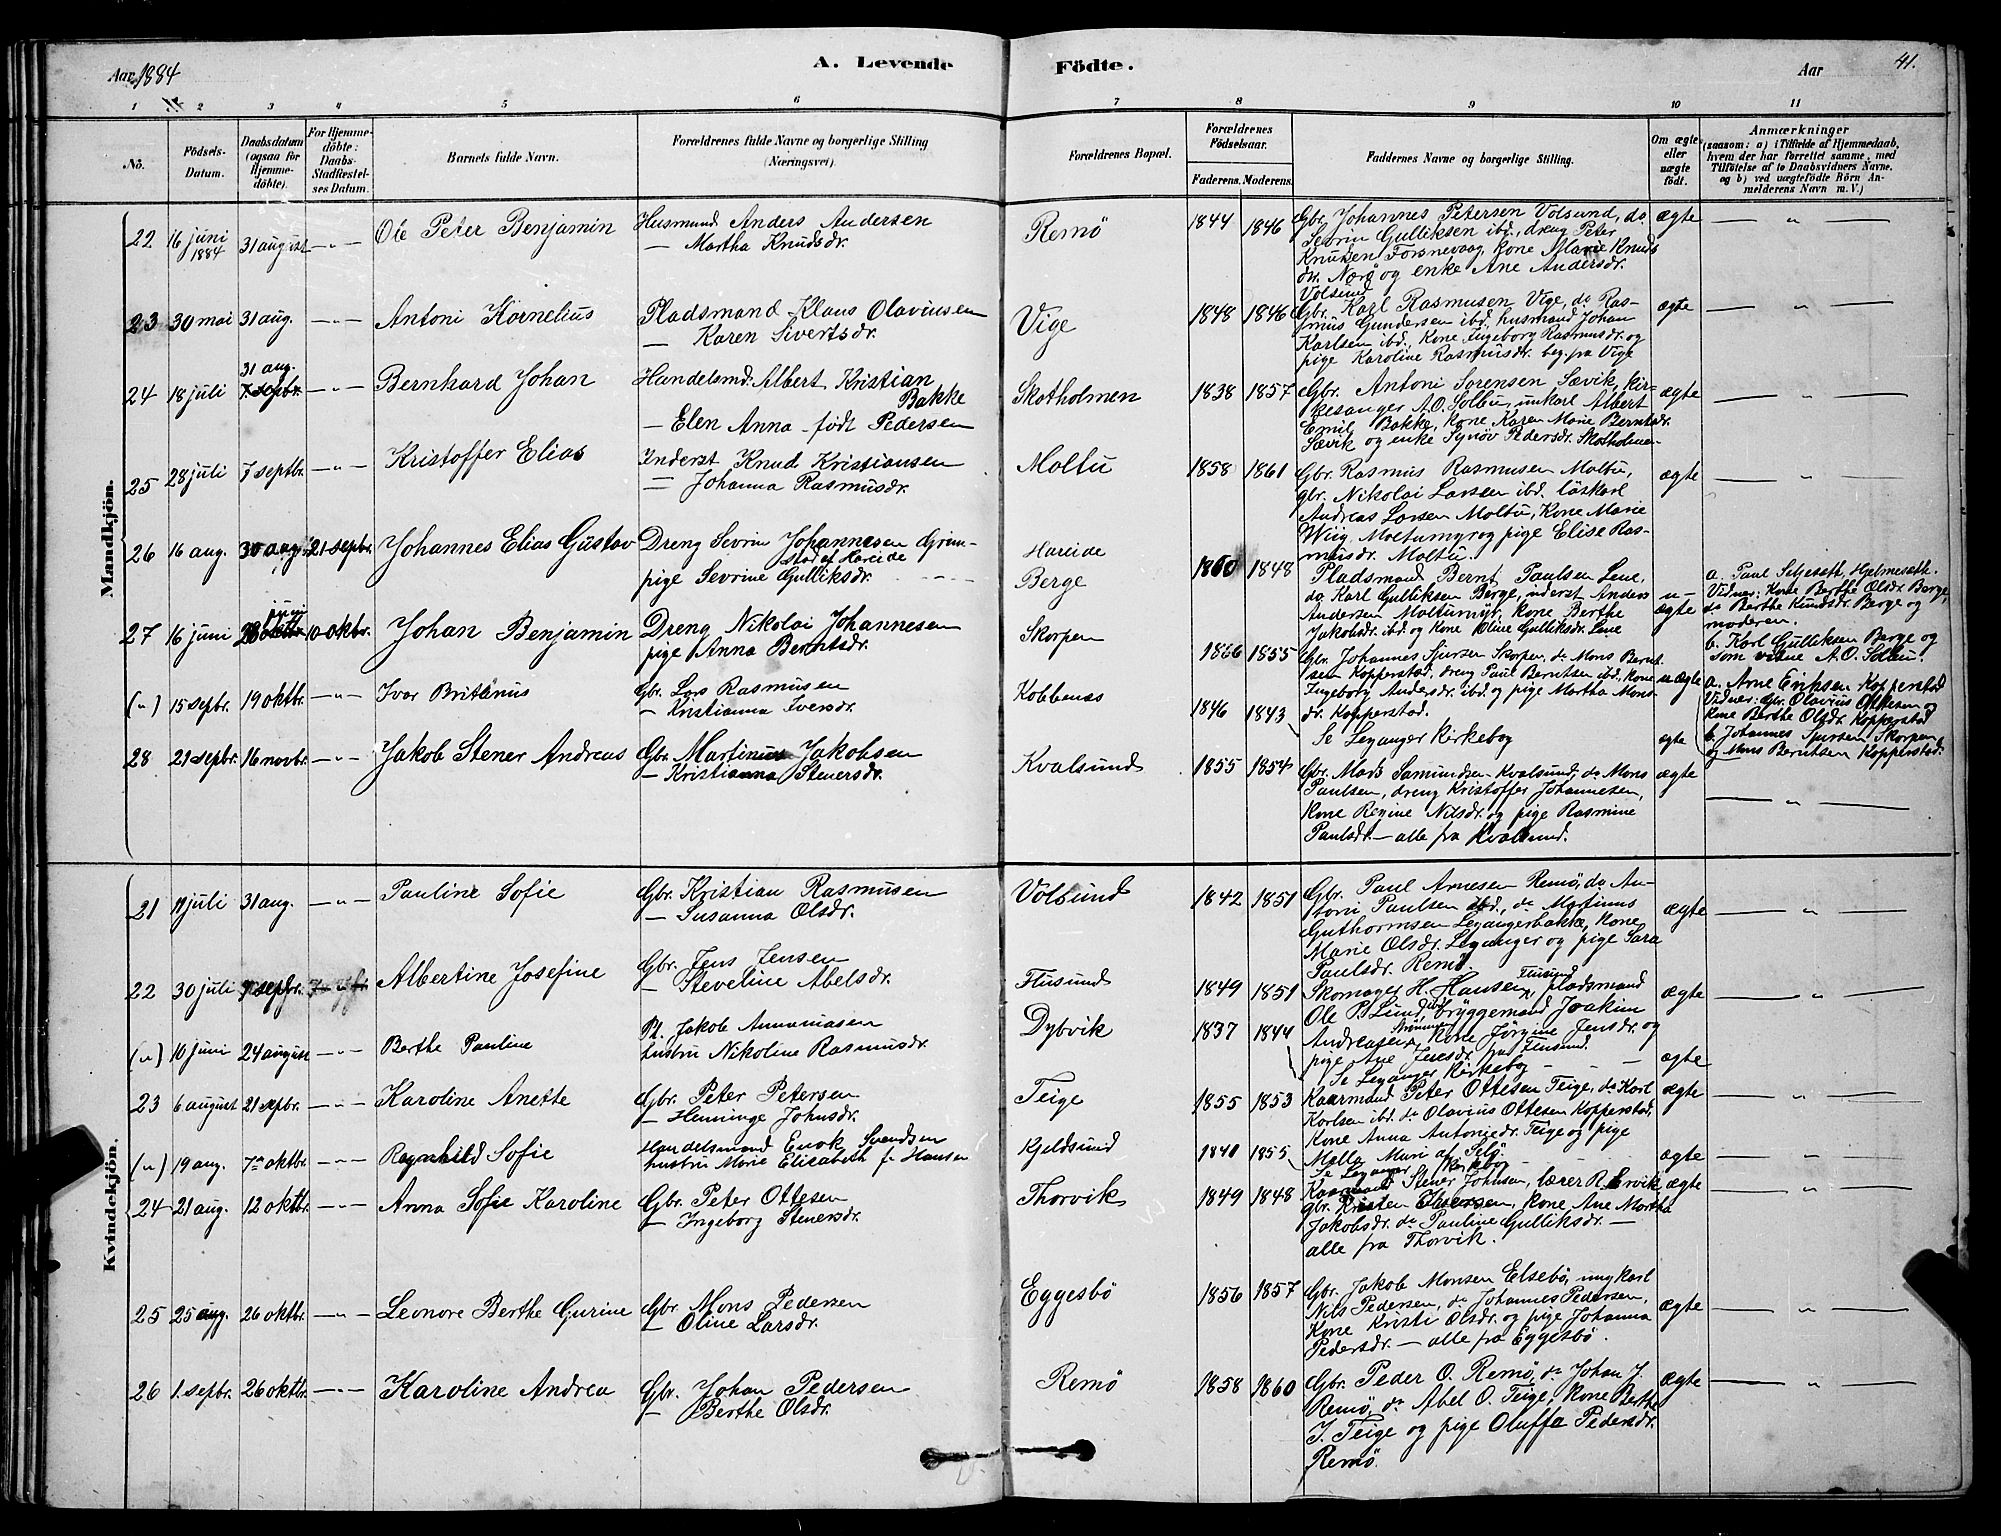 Aar 1884
A. Levende Födte.
Aar
41.
1 2 3 4 5 6 7 8 9 10 11
No.
Födsels-Datum.
Daabsdatum (ogsaa for Hjemmedöbte).
For Hjemmedöbte: Daabs-Stadfæstelses Datum.
Barnets fulde Navn.
Forældrenes fulde Navne og borgerlige Stilling (Næringsvei).
Forældrenes Bopæl.
Forældrenes Födselsaar.
Faderens. Moderens.
Faddernes Navne og borgerlige Stilling.
Om ægte eller uægte födt.
Anmærkninger
(saasom: a) i Tilfælde af Hjemmedaab,
hvem der har forrettet samme, med
Tilföielse af to Daabsvidners Navne,
og b) ved uægtefödte Börn Anmelderens Navn m. V.)
Mandkjön.
22 16 juni 1884 31 august — " — Ole Peter Benjamin
Husmand Anders Andersen
— Martha Knudsdr.
Remö 1844 1846
Gbr. Johannes Petersen Volsund, do
Sevrin Gulliksen ibd., dreng Peter
Knutsen Fosnevaag, kone Marie Knuds
dr. Nærö og enke Ane Andersdr.
Volsund
ægte — " —
23 30 mai 31 aug. — " — Antoni Kornelius
Pladsmand Klaus Olaviusen
— Karen Sivertsdr.
Vige 1848 1846
Gbr. Karl Rasmusen Vige, do Ras-
mus Gundersen ibd., husmand Johan
Karlsen ibd., Kone Ingeborg Rasmusdr. og
pige Karoline Rasmusdr. beg. fra Vige
ægte — " —
24 18 juli 31 aug. 7 septbr. — " — Bernhard Johan
Handelsmd. Albert Kristian
Bakke
— Elen Anna född Pedersen
Skotholmen 1838 1857
Gbr. Antoni Sorensen Sævik, kir-
kesanger A.O. Solbu, unkarl Albert
Emil Bakke, kone Karen Marie Berntsdr.
Sævik og enke Synöv Pedersdr. Skotholmen
ægte — " —
25 28 juli 7 septbr. — " — Kristoffer Elias
Inderst Knud Kristiansen
— Johanna Rasmusdr.
Moltu 1858 1861
Gbr. Rasmus Rasmusen Moltu,
gbr. Nikolai Larsen ibd. löskarl
Andreas Larsen Moltu, Kone Marie
Wiig Moltumyr og pige Elise Ras-
musdr. Moltu.
ægte — " —
26 16 aug. 30 aug. 21 septbr. Johannes Elias Gustav
Dreng Sevrin Johannesen Grim-
stad af Hareide
pige Sevrine Gulliksdr.
Hareide
Berge 1860 1848
Pladsmand Bernt Paulsen Lene,
do Karl Gulliksen Berge, inderst Anders
Andersen Moltumyr, kone Berthe
Jakobsdr. ibd. og Kone Oline Gulliksdr. Lene
u-ægte
a. Paul Seljesæth, Hjelmesæth.
Vidner: Kone Berthe Olsdr. Berge,
do Berthe Knudsdr. Berge og
moderen.
b. Karl Gulliksen Berge og
som vidne A.O. Solbu.
27 16 juni 28 juni 10 oktbr. Johan Benjamin
Dreng Nikolai Johannesen
pige Anna Berntsdr.
Skorpen 1866 1855
Gbr. Johannes Sjursen Skorpen, do Mons Bernt
sen Kopperstad, dreng Paul Berntsen ibd., kone
Ingeborg Andersdr. ibd. og pige Martha Mons-
dr. Kopperstad.
u-ægte
a. Arne Eriksen Kopperstad
Vidner: Gbr. Olavius Ottesen og
Kone Berthe Olsdr. Kopperstad
b. Johannes Sjursen Skorpen
og Mons Berntsen Kopperstad.
(") 15 sepbr. 19 oktbr. — " — Ivar Britinus
Gbr. Lars Rasmusen
— Kristianna Iversdr.
Kobbenæs 1846 1843
Se Leganger Kirkebog
egte
28 21 sepbr. 16 novbr. — " — Jakob Stener Andreas
Gbr. Martinus Jakobsen
— Kristianna Stenersdr.
Kvalsund 1855 1854
Gbr. Mads Samundsen Kvalsund, do Mons
Paulsen, dreng Kristoffer Johannesen,
Kone Regine Nilsdr. og pige Rasmine
Paulsdr. — alle fra Kvalsund.
ægte — " —
Kvindekjön.
21 11 juli 31 aug. — " — Pauline Sofie
Gbr. Kristian Rasmusen
— Susanna Olsdr.
Volsund 1842 1851
Gbr. Paul Arnesen Remö, do An-
toni Paulsen ibd., do Martinus
Guthormsen Legangerbakke, kone
Marie Olsdr. Leganger og pige Sara
Paulsdr. Remö.
ægte — " —
22 30 juli 7 sepbr. Albertine Josefine
Gbr. Jens Jensen
— Steveline Abelsdr.
Flusund 1849 1851
Skomager H. Hansen Flusund, pladsmand
Ole P. Lund ibd., bryggemand Joakim
Andreasen, kone Jörgine Jensdr. og
pige Ane Jensdr. fra Flusund.
ægte — " —
(") 10 juni 24 august — " — Berthe Pauline
Pl. Jakob Annaniasen
hustru Nikoline Rasmusdr.
Dybvik 1837 1844
Se Leganger Kirkebog
ægte
23 6 august 21 sepbr. — " — Karoline Anette
Gbr. Peter Petersen
— Henninge Johnsdr.
Teige 1855 1853
Kaarmand Peter Ottesen Teige, do Karl
Karlsen ibd. do Olavius Ottesen Kopperstad,
Kone Anna Antonjedr. Teige og pige
Malla Mari af Selö.
ægte — " —
(") 19 aug. 7de oktbr. — " — Ragnhild Sofie
Handelsmand Enok Svendsen
hustru Marie Elisabeth f. Hansen
Kjeldsund 1840 1855
Se Leganger Kirkebog
ægte — " —
24 21 aug. 12 oktbr. — " — Anna Sofie Karoline
Gbr. Peter Ottesen
— Ingeborg Stenersdr.
Thorvik 1849 1848
Kaarmand Stener Johnsen, lærer R. Ervik
gbr. Kristen Stenersen, kone Ane Martha
Jakobsdr. do Pauline Gulliksdr. —
alle fra Thorvik.
ægte — " —
25 25 aug. 26 oktbr. — " — Leonore Berthe Gurine
Gbr. Mons Pedersen
— Oline Larsdr.
Eggesbö 1856 1857
Gbr. Jakob Monsen Elsebö, ungkarl
Nils Pedersen, do Johannes Pedersen,
Kone Kristi Olsdr. og pige Johanna
Pedersdr. — alle fra Eggesbö.
ægte — " —
26 1. sepbr. 26 oktbr. — " — Karoline Andrea
Gbr. Johan Pedersen
— Berthe Olsdr.
Remö 1858 1860
Gbr. Peder O. Remö, do Johan J.
Remö, do Abel O. Teige, kone Berthe
J. Teige og pige Oluffa Pedersdr.
Remö.
ægte — " —